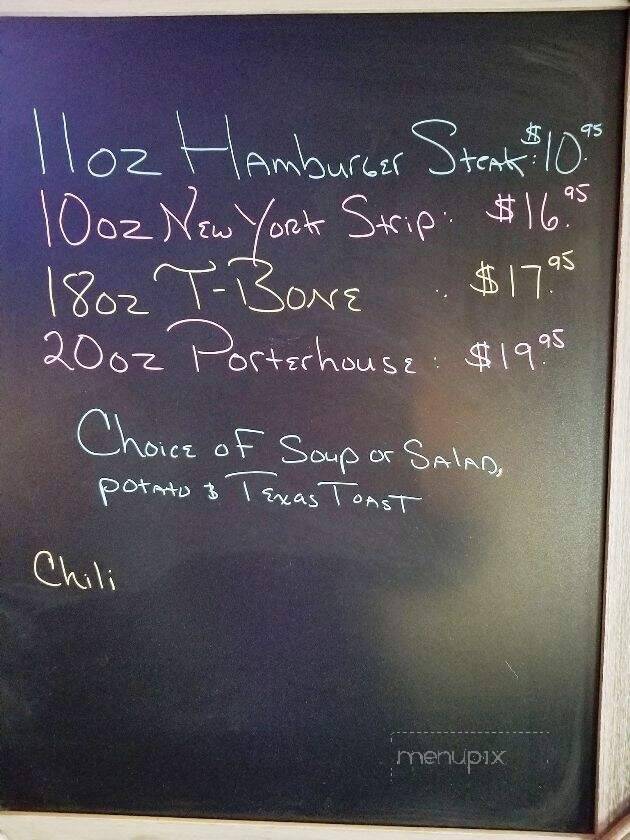 11oz Hamburger Steak: $10.95
10oz New York Strip: $16.95
18oz T-Bone : $17.95
20oz Porterhouse: $19.95
Choice of Soup or Salad,
potato & Texas Toast
Chili
menupix